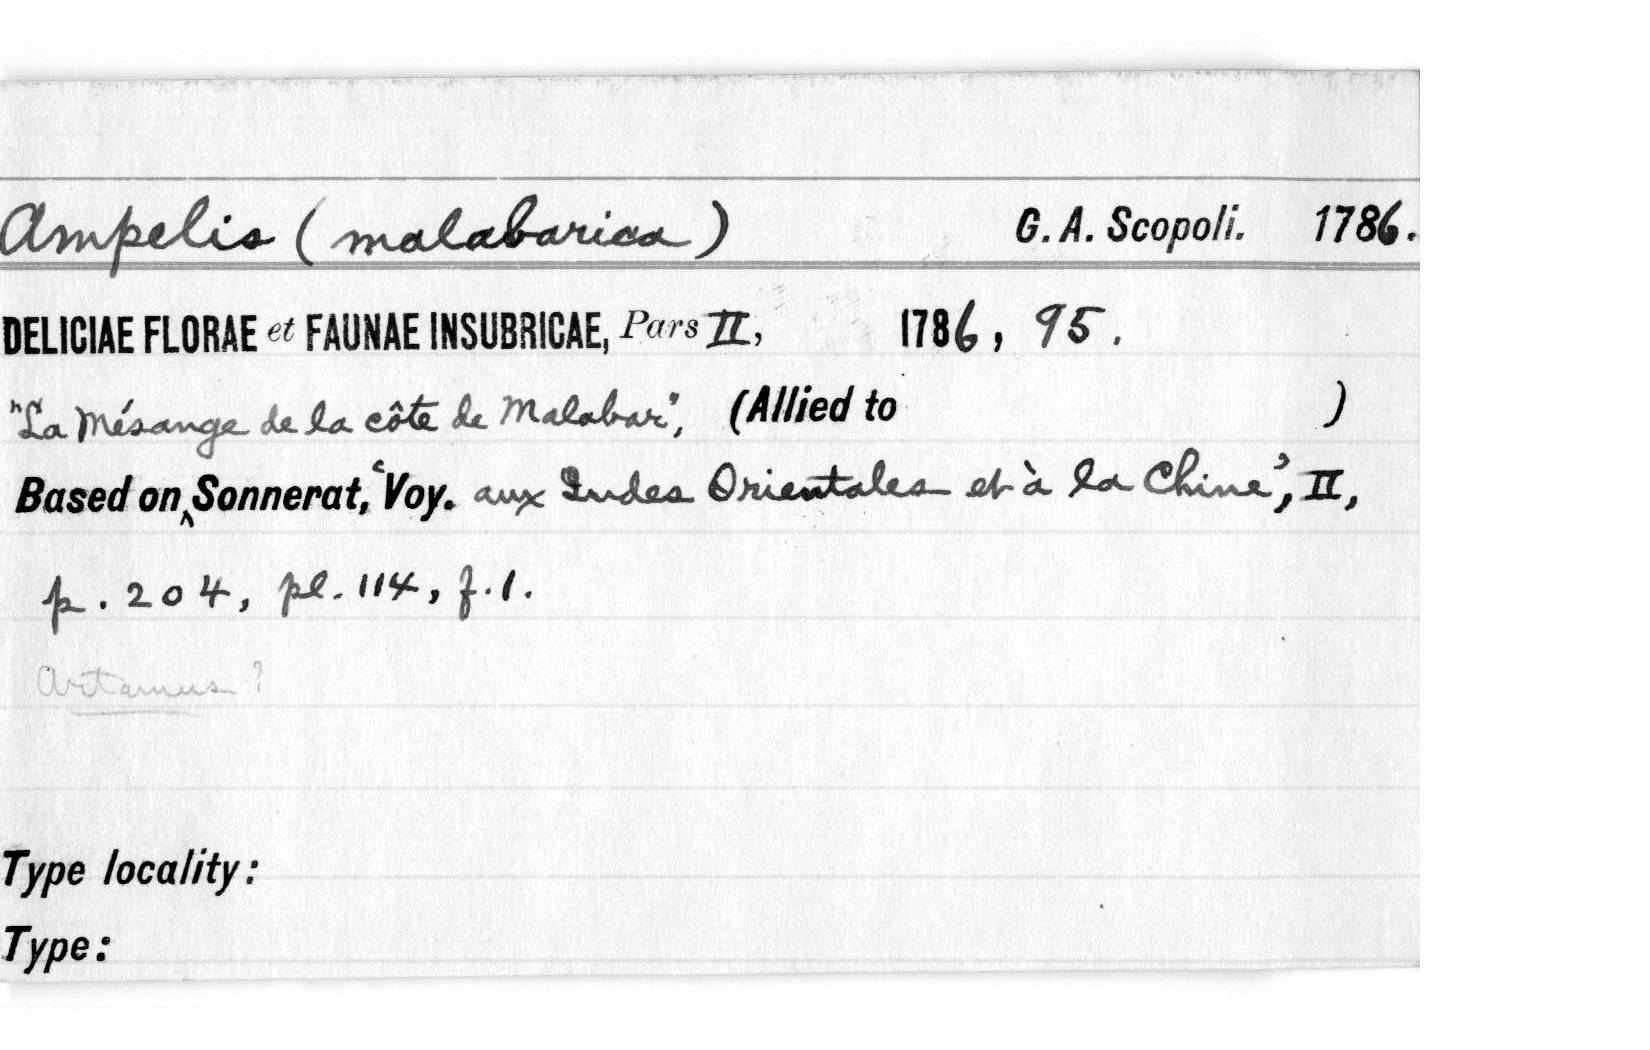 Ampelis (malabarica) G. A. Scopoli. 1786.
DELICIAE FLORAE et FAUNAE INSUBRICAE, Pars II, 1786, 95.
"La Mésange de la côte de Malabar", (Allied to )
Based on ‸ Sonnerat, ‘Voy. aux Indes Orientales et à la Chine’, II,
p. 204, pl. 114, f. 1.
Artamus ?
Type locality:
Type: